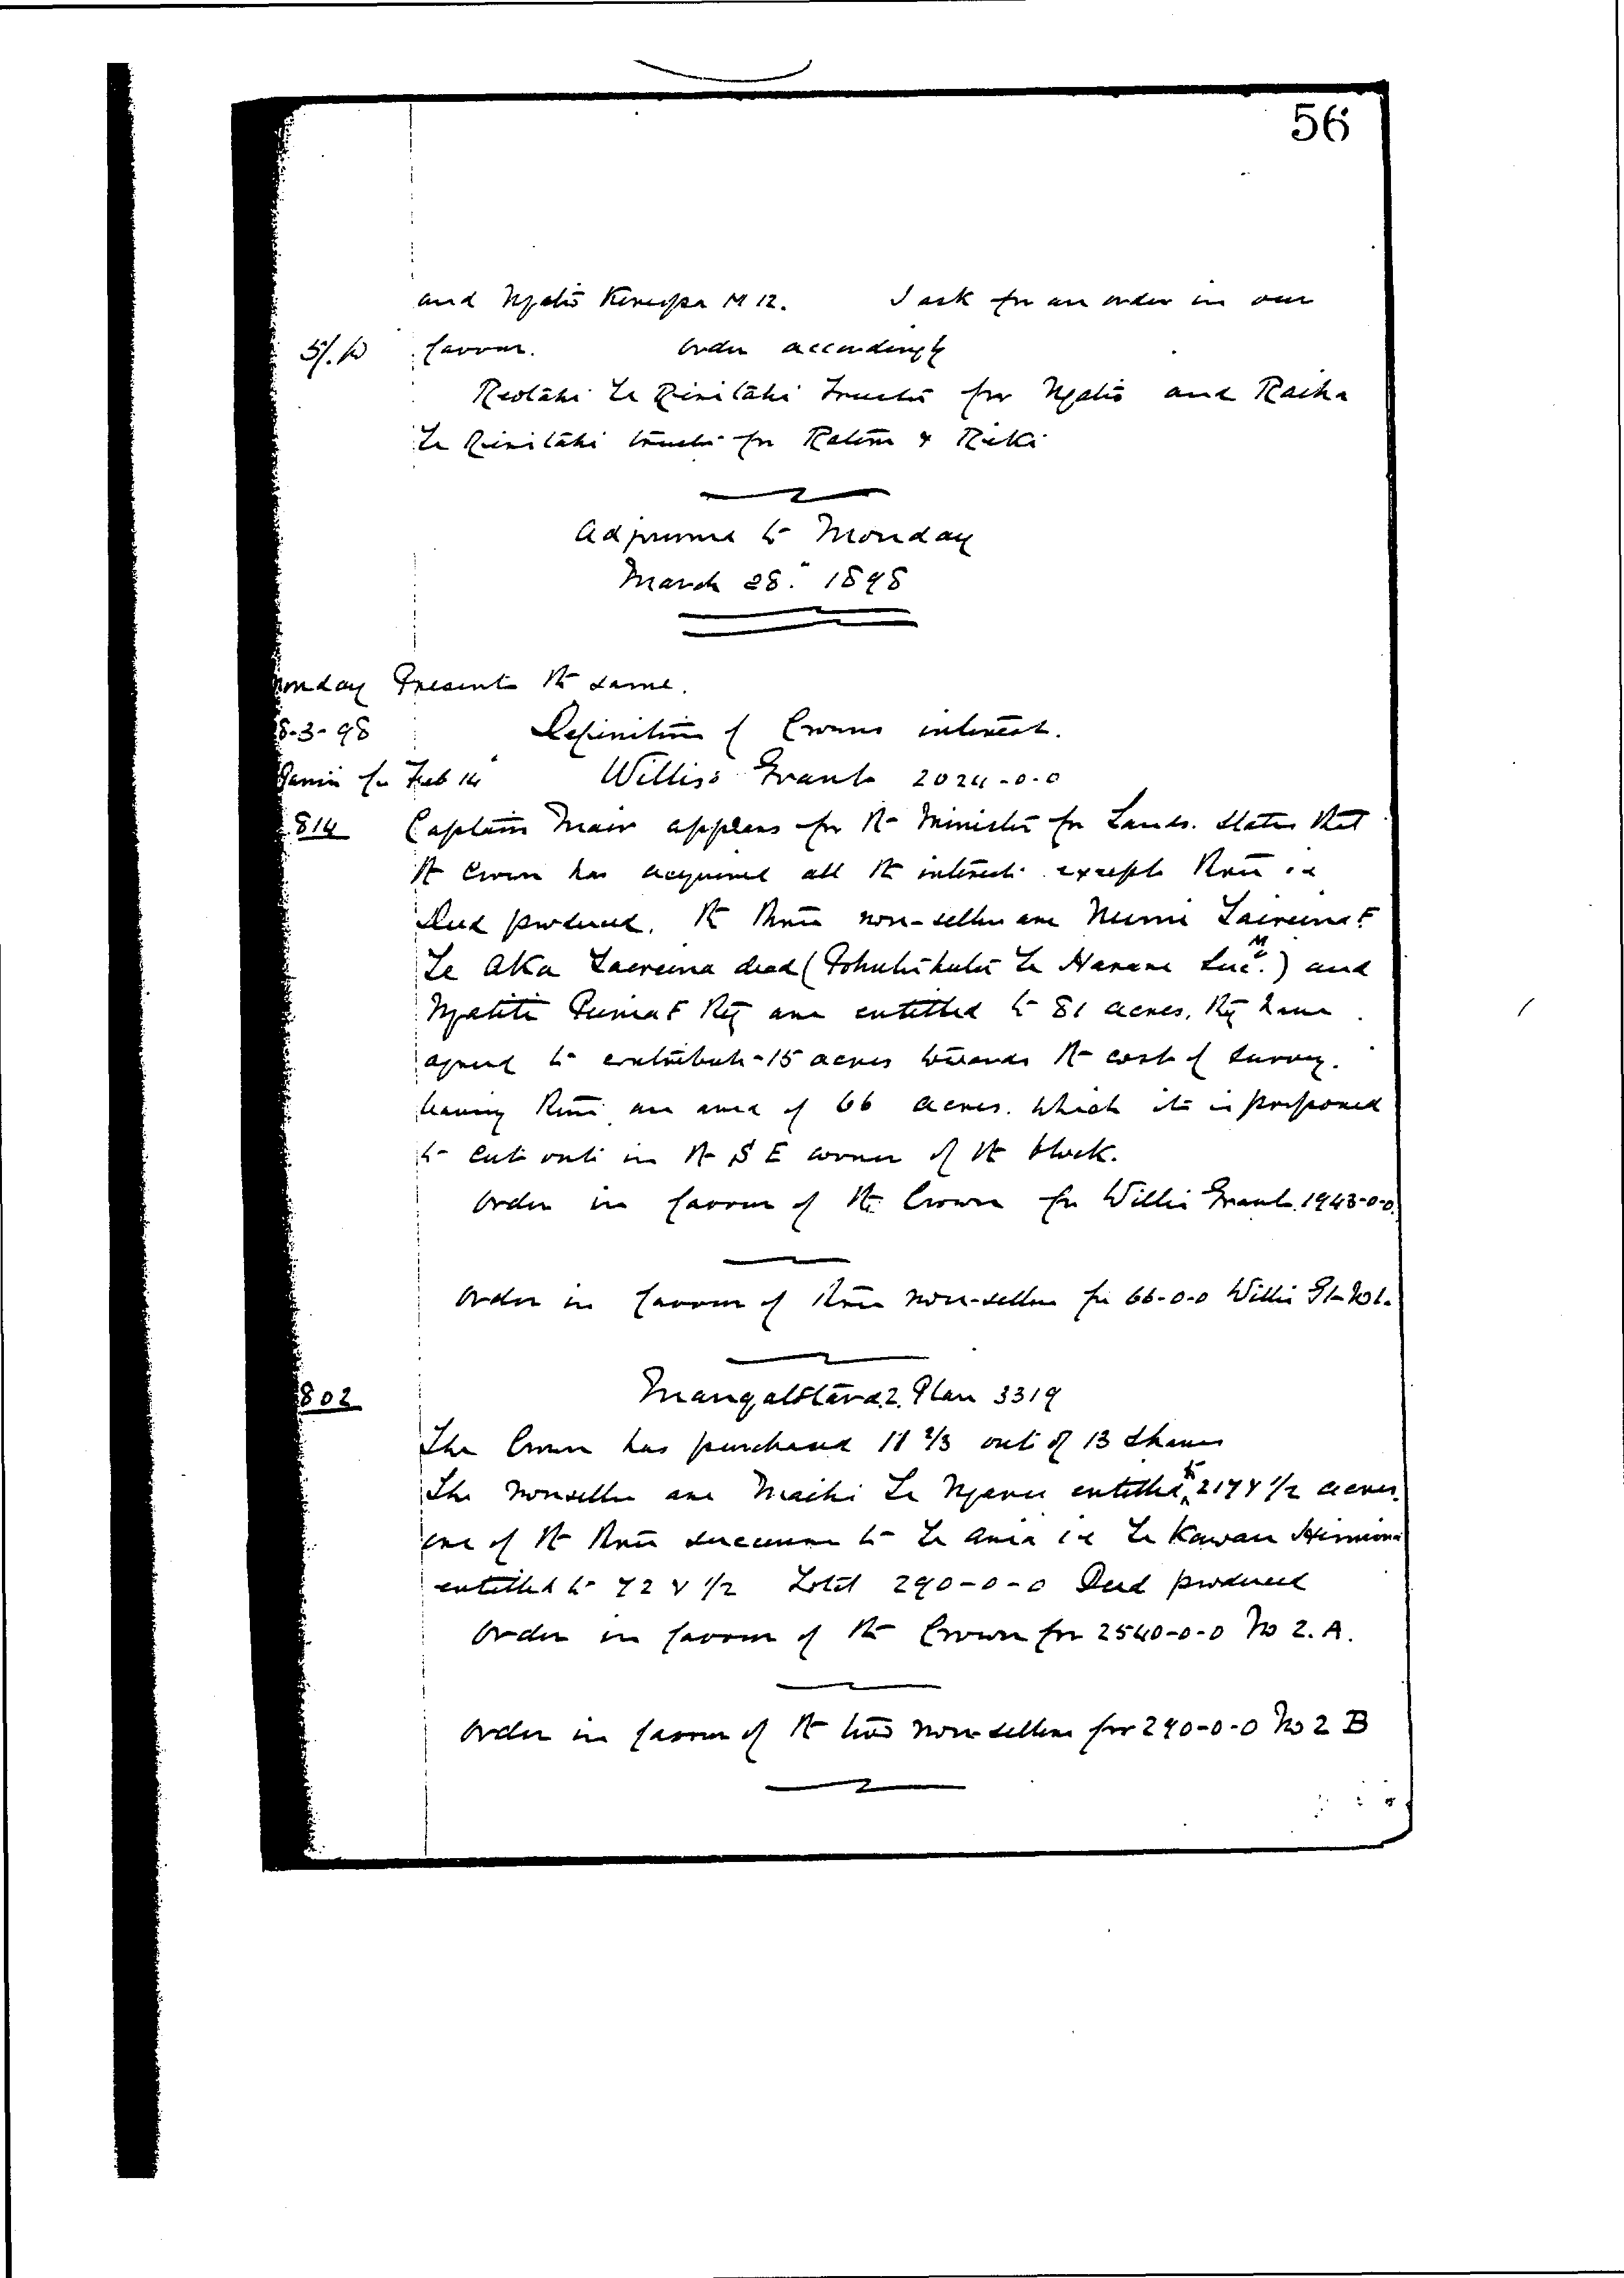 56
and Ngatio Kereopa M 12. I ask for an order in our
5/. favour. Order accordingly
Reotahi Te Ririitahi trustee for Ngatio and Raiha
Te Ririitahi trustee for & Riki
Adjourned to Monday
March 28th 1898
Monday Present the same.
8-3-98 Definition of Crowns interest.
from Feb 14 Willis's Grant 2024-0-0
814 Captain Mair appears for the Minister for Lands. States that
the Crown has acquired all the interests except three i.e
Deed produced. The three non-sellers are F
Te Aka dead ( Te Harare Suc. M) and
Ngatiti F They are entitled to 81 acres, they have
agreed to contribute 15 acres towards the cost of survey.
leaving them an area of 66 acres. which it is proposed
to cut out in the S E corner of the block.
Order in favour of the Crown for Willis Grant 1943-0-0.
Order in favour of three non-sellers for 66-0-0 Willis Gt No 1.
802 Mangaototara 2. Plan 3319
The Crown has purchased 11 2/3 out of 13 shares
The nonsellers are Maihi Te Ngaru entitled to 217 & 1/2 acres.
one of the three successors to Te Ania i.e Te Kawau Himiona
entitled to 72 & 1/2 Total 290-0-0 Deed produced
Order in favour of the Crown for 2540-0-0 No 2. A.
Order in favour of the two non-sellers for 290-0-0 No 2 B